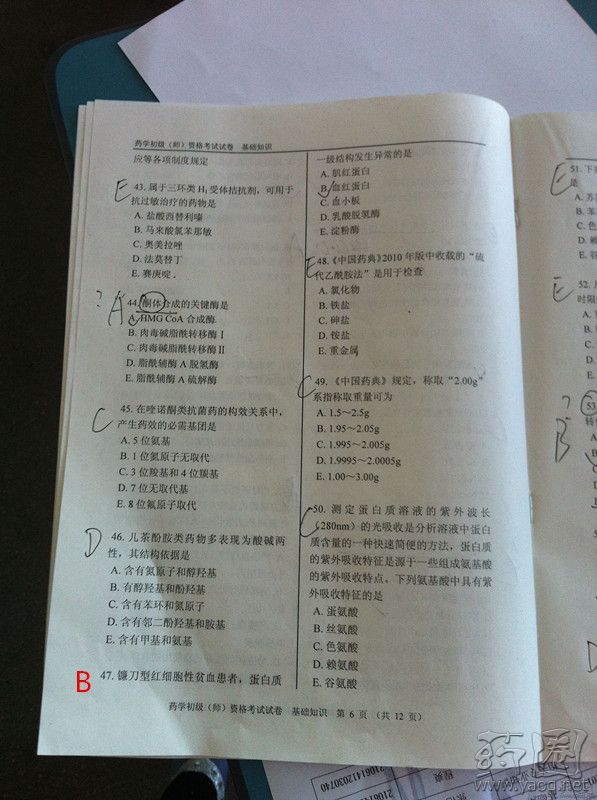 药学初级（师）资格考试试卷 基础知识
应等各项制度规定
E
43. 属于三环类 H₁ 受体拮抗剂，可用于
抗过敏治疗的药物是
A. 盐酸西替利嗪
B. 马来酸氯苯那敏
C. 奥美拉唑
D. 法莫替丁
E. 赛庚啶．
? A
44. 酮体合成的关键酶是
A. HMG CoA 合成酶
B. 肉毒碱脂酰转移酶 I
C. 肉毒碱脂酰转移酶 II
D. 脂酰辅酶 A 脱氢酶
E. 脂酰辅酶 A 硫解酶
C
45. 在喹诺酮类抗菌药的构效关系中，
产生药效的必需基团是
A. 5 位氨基
B. 1 位氮原子无取代
C. 3 位羧基和 4 位羰基
D. 7 位无取代基
E. 8 位氟原子取代
D
46. 儿茶酚胺类药物多表现为酸碱两
性，其结构依据是
A. 含有氮原子和醇羟基
B. 有醇羟基和酚羟基
C. 含有苯环和氮原子
D. 含有邻二酚羟基和胺基
E. 含有甲基和氨基
B
47. 镰刀型红细胞性贫血患者，蛋白质
一级结构发生异常的是
A. 肌红蛋白
B. 血红蛋白
C. 血小板
D. 乳酸脱氢酶
E. 淀粉酶
E
48.《中国药典》2010 年版中收载的“硫
代乙酰胺法”是用于检查
A. 氯化物
B. 铁盐
C. 砷盐
D. 铵盐
E. 重金属
C
49. 《中国药典》规定，称取“2.00g”
系指称取重量可为
A. 1.5～2.5g
B. 1.95～2.05g
C. 1.995～2.005g
D. 1.9995～2.0005g
E. 1.00～3.00g
C
50. 测定蛋白质溶液的紫外波长
（280nm）的光吸收是分析溶液中蛋白
质含量的一种快速简便的方法，蛋白质
的紫外吸收特征是源于一些组成氨基酸
的紫外吸收特点。下列氨基酸中具有紫
外吸收特征的是
A. 蛋氨酸
B. 丝氨酸
C. 色氨酸
D. 赖氨酸
E. 谷氨酸
药学初级（师）资格考试试卷 基础知识 第 6 页 （共 12 页）
E
51. 下
是
A. 苏
B. 苯
C. 色
D. 赖
E. 谷
E
52.
时限
A.
B.
C.
D.
E.
? B
53
转
A.
B.
C.
D.
E.
210614120307​40
21061412
药圈
www.yaoq.net